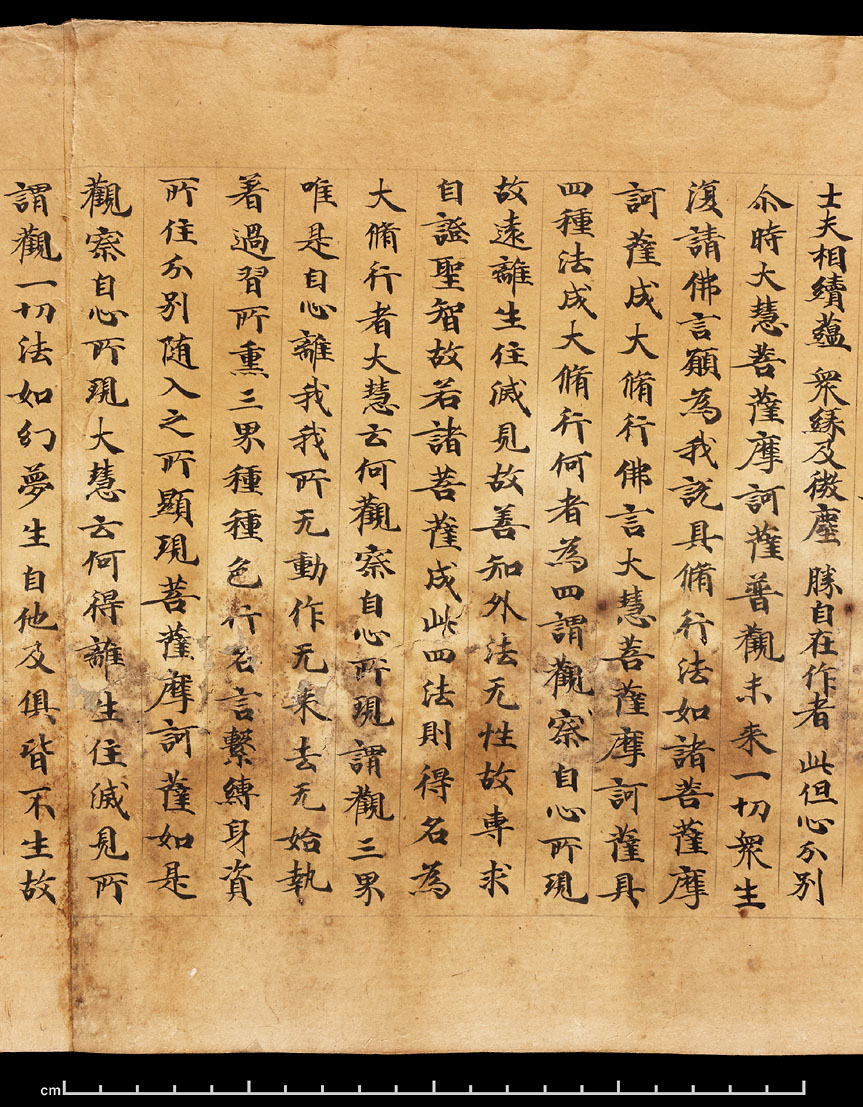 士夫相續蘊 衆緣及微塵 勝自在作者 此但心分別
尒時大慧菩薩摩訶薩普觀未來一切衆生
復請佛言願為我說具脩行法如諸菩薩摩
訶薩成大脩行佛言大慧菩薩摩訶薩具
四種法成大脩行何者為四謂觀察自心所現
故遠離生住滅見故善知外法无性故專求
自證聖智故若諸菩薩成此四法則得名為
大脩行者大慧云何觀察自心所現謂觀三界
唯是自心離我我所无動作无来去无始執
著過習所熏三界種種色行名言繫縛身資
所住分別随入之所顯現菩薩摩訶薩如是
觀察自心所現大慧云何得離生住滅見所
謂觀一切法如幻夢生自他及俱皆不生故
cm